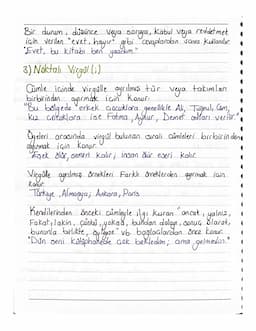 Bir durum, düşünce veya soruya, kabul veya reddetmek
için verilen "evet, hayır" gibi cevaplardan sonra kullanılır.
"Evet, bu kitabı ben yazdım."
3) Noktalı Virgül (;)
Cümle içinde virgülle ayrılmış tür veya takımları
birbirinden ayırmak için konur.
"Bu bölgede erkek çocuklara genellikle Ali, Tuğrul, Can,
kız çocuklara ise Fatma, Aynur, Demet adları verilir."
Öğeleri arasında virgül bulunan sıralı cümleleri birbirinden
ayırmak için konur.
"Eşek ölür, semeri kalır; insan ölür eseri kalır.
Virgülle ayrılmış örnekleri farklı örneklerden ayırmak için
konur.
Türkiye, Almanya; Ankara, Paris
Kendilerinden önceki cümleyle ilgi kuran ancak, yalnız,
fakat, lakin, çünkü, yoksa, bundan dolayı, sonuç olarak,
bununla birlikte, öyleyse vb bağlaçlardan önce konur.
"Dün seni kütüphanede çok bekledim; ama gelmedin."